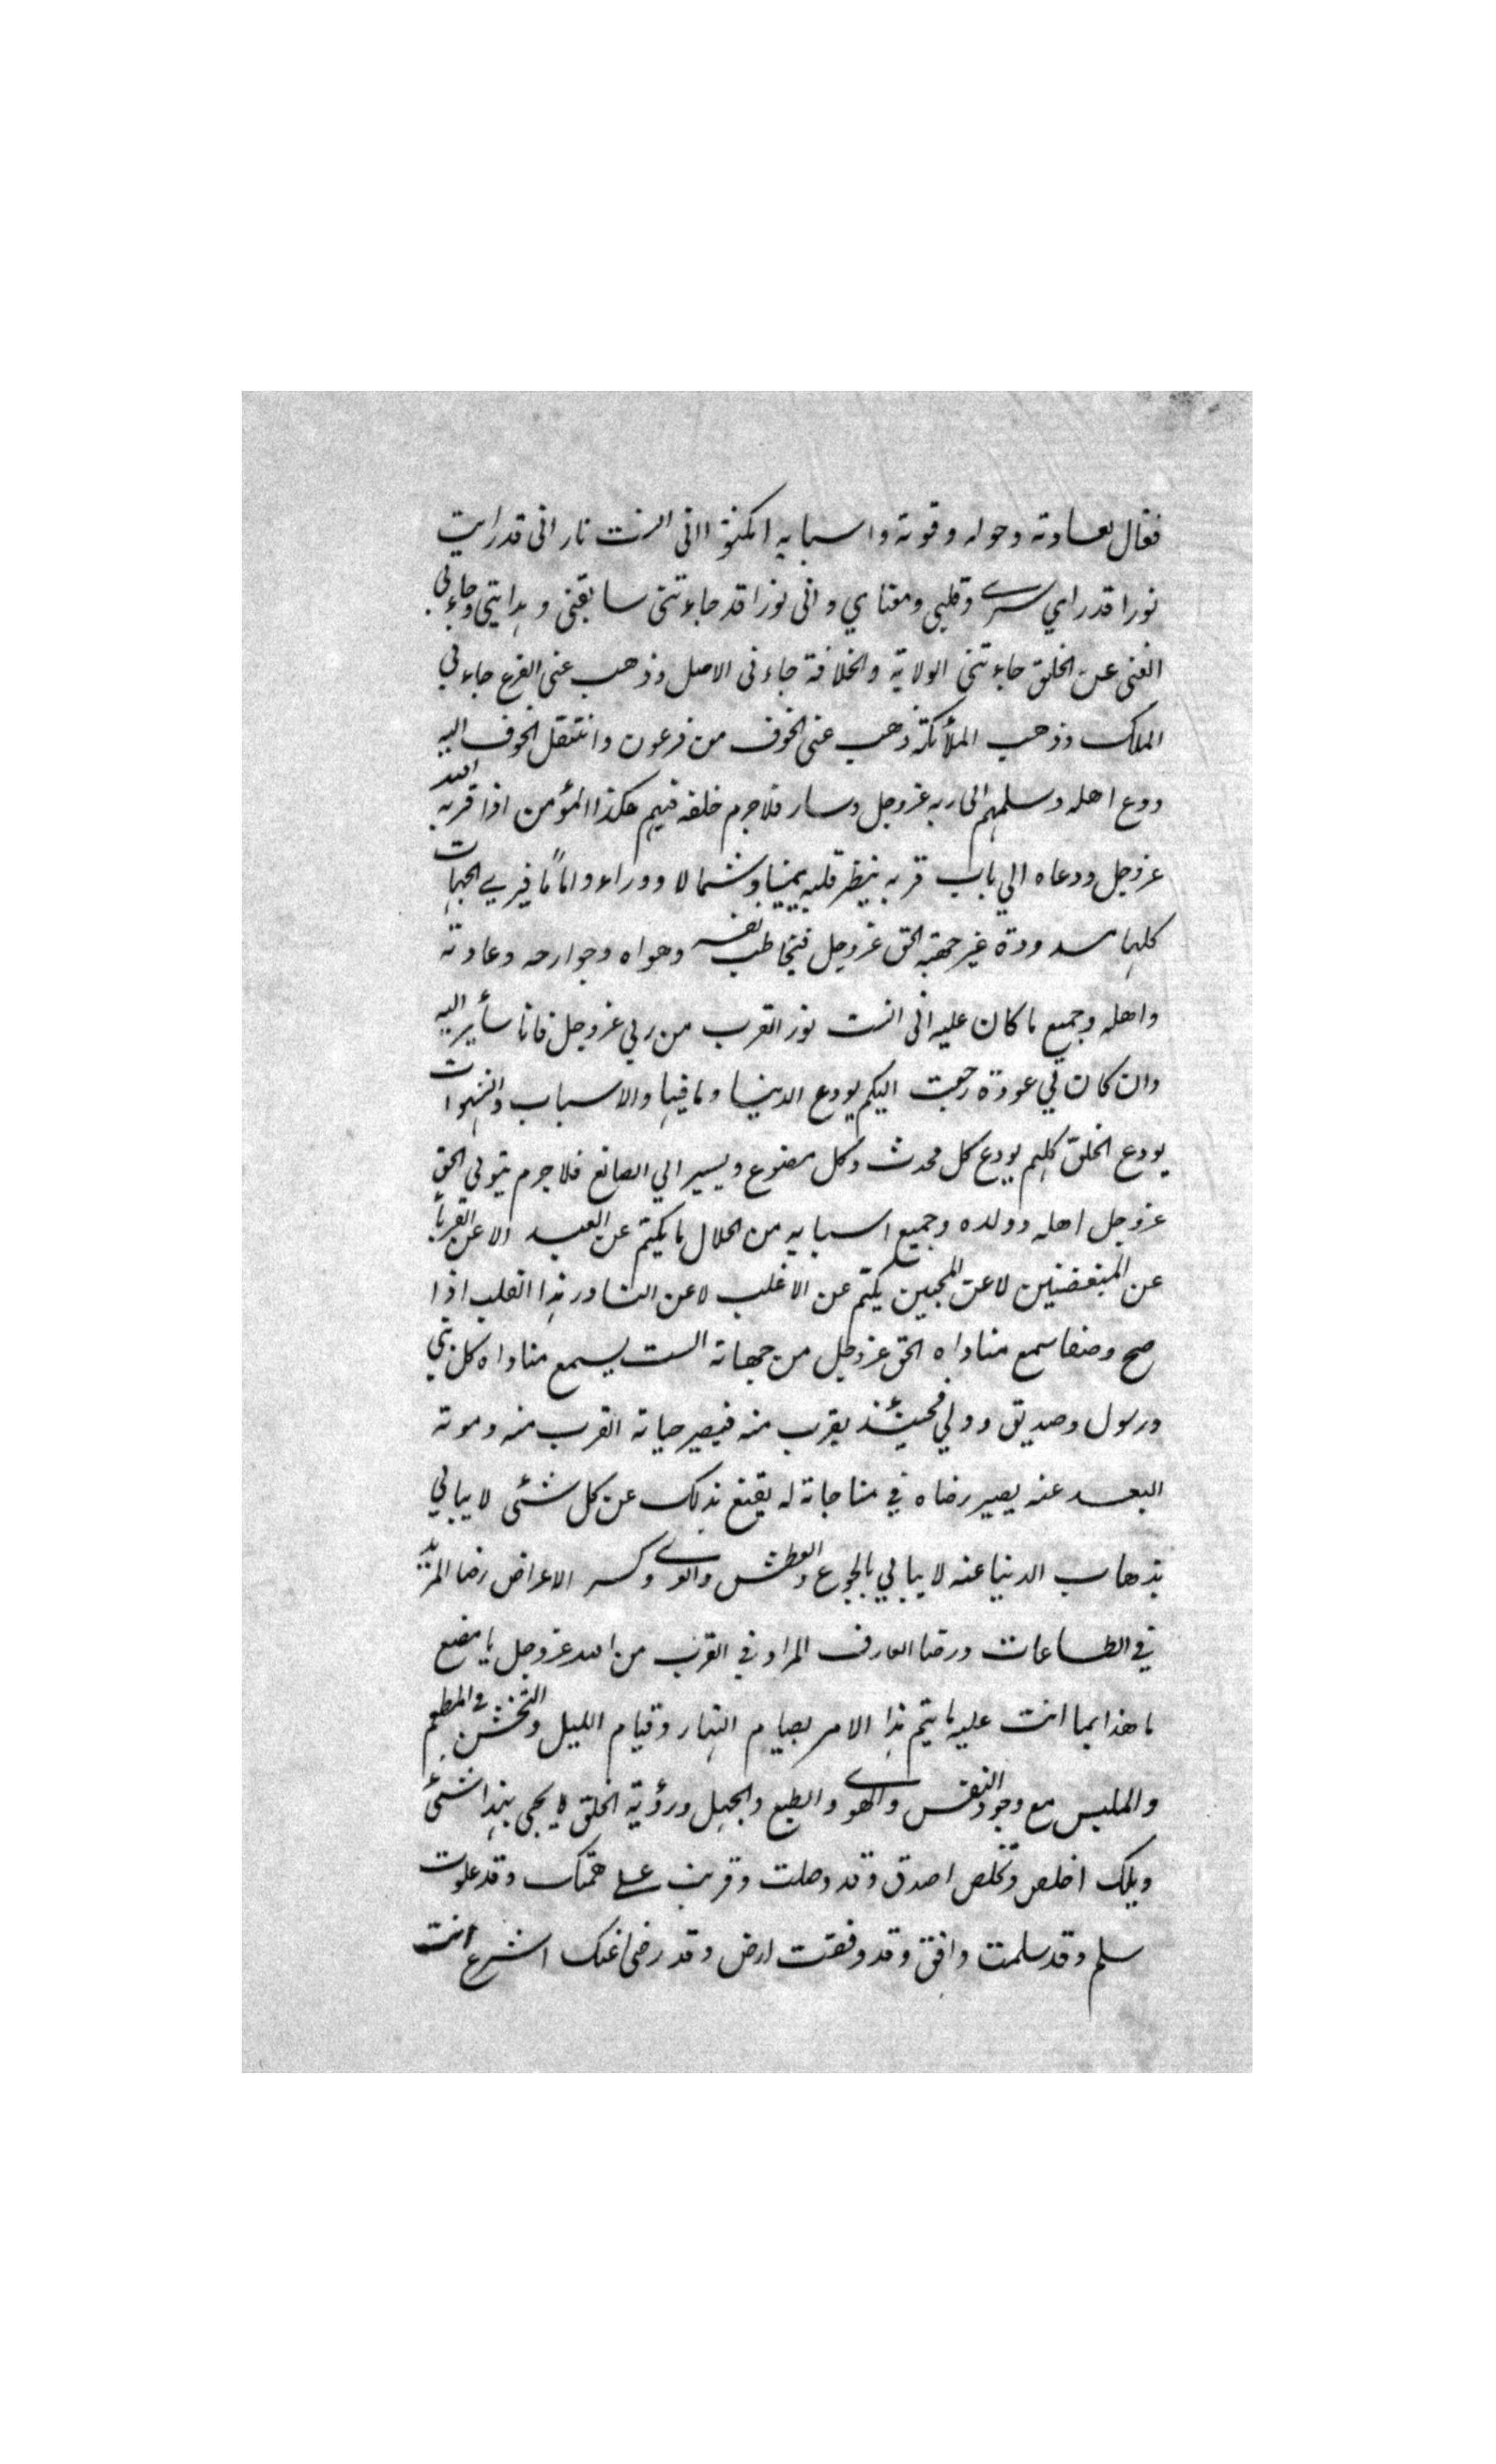 فقال لعادته وحوله وقوته واسبابه امكثوا انى انست نارا انى قد رايت
نورا قد راي سرى وقلبى ومعناي وانى نورا قد جاءتنى سابقتى وهدايتى وجاءنى
الغنى عن الخلق جاءتنى الولاية والخلافة جاءنى الاصل وذهب عنى الفرع جاءنى
الملك وذهب الملأئكة ذهب عنى الخوف من فرعون وانتقل الخوف اليه
ودع اهله وسلمهم الى ربه عزوجل وسار فلاجرم خلفه فيهم هكذا المؤمن اذا قربه الله
عزوجل ودعاه الي باب قربه ينظر قلبه يمينا وشمالا ووراء واماًما فيرى الجهات
كلها مسدودة غير جهة الحق عزوجل فيخاطب نفسه وهواه وجوارحه وعادته
واهله وجميع ما كان عليه انى انست نور القرب من ربي عزوجل فانا سأير اليه
وان كان لي عودة رجعت اليكم يودع الدنيا وما فيها والاسباب والشهوات
يودع الخلق كلهم يودع كل محدث وكل مصنوع ويسير الي الصانع فلاجرم يتولى الحق
عزوجل اهله وولده وجميع اسبابه من الحلال ما يكتم عن العبيد الا عن القربأ
عن المبغضين لا عن المحبين يكتم عن الاغلب لا عن النادر هذا القلب اذا
صح وصفا سمع مناداه الحق عزوجل من جهاته الست يسمع مناداه كل نبي
ورسول وصديق وولي فحينئذ يقرب منه فيصير حياته القرب منه وموته
البعد عنه يصير رضاه في مناجاته له يقنع بذلك عن كل شئى لا يبالي
بذهاب الدنيا عنه لا يبالي بالجوع والعطش والعرى وكسر الاعراض رضا المريد
في الطاعات ورضا العارف المراد في القرب من الله عزوجل يا مصنع
ما هذا بما انت عليه ما يتم هذا الامر بصيام النهار وقيام الليل والتخشن في المطعم
والملبس مع وجود النفس والهوى والطبع والجهل ورؤية الخلق ما يجى بهذا شئى
ويلك اخلص وتخلص اصدق وقد وصلت وقربت على همتك وقد علوت
سلم وقد سلمت وافق وقد وفقت ارض وقد رضى عنك اشرع انت